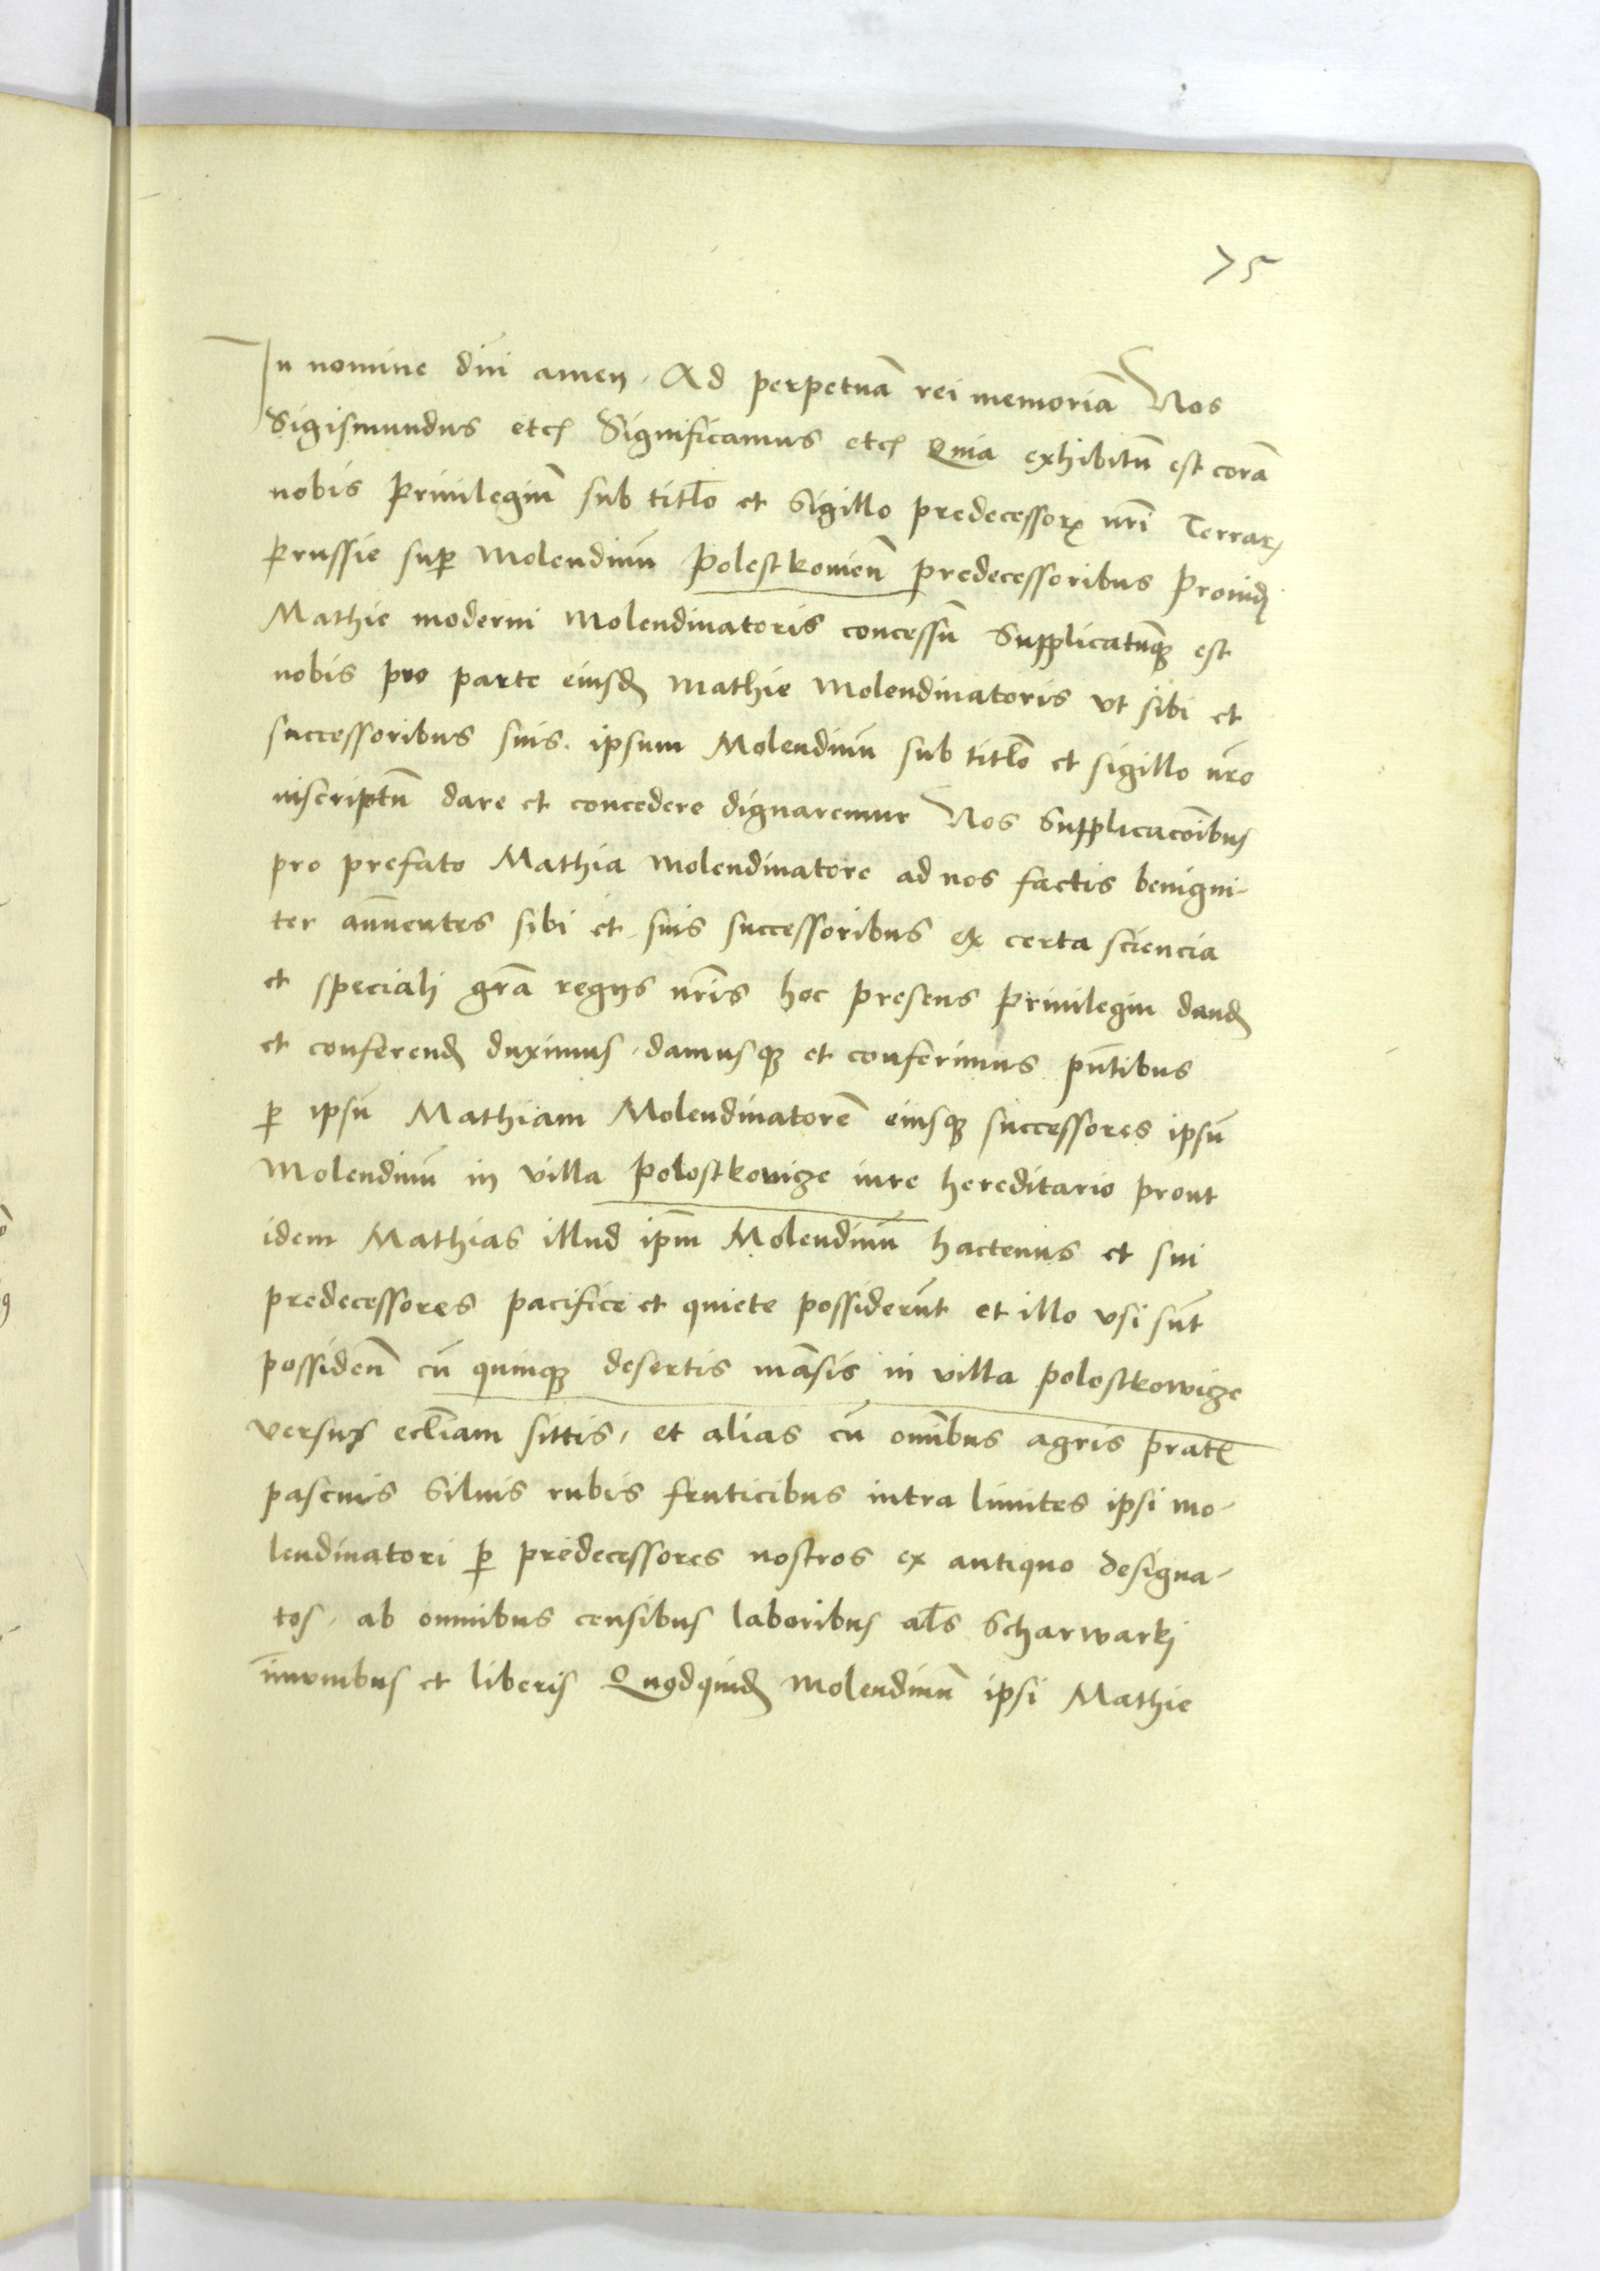 75
In nomine dni amen. Ad perpetuā rei memoriā Nos
Sigismundus etc Significamus etc Quia exhibitū est corā
nobis Priuilegiū sub titlo et Sigillo predecessorꝝ nrī Terrarꝝ
Prussie sup Molendinū Polestkouien̄ predecessoribus Prouidj
Mathie moderni Molendinatoris concessū Supplicatūqꝫ est
nobis pro parte eiusdꝫ Mathie Molendinatoris vt sibi et
successoribus suis. ipsum Molendinū sub titlo et sigillo nro
inscriptū dare et concedere dignaremur Nos Supplicacōibus
pro prefato Mathia Molendinatore ad nos factis benigni-
ter ann̄uentes sibi et suis successoribus ex certa sciencia
et speciali grā regijs nrīs hoc presens Priuilegiū dandꝫ
et conferendꝫ duximus. damusqꝫ et conferimus pn̄tibus
ꝑ ipsū Mathiam Molendinatorē eiusqꝫ successores ipsū
Molendinū in villa Polostkouicze iure hereditario prout
idem Mathias illud ipm̄ Molendinū hactenus et sui
predecessores pacifice et quiete possiderūt et illo vsi sūt
possiden̄ cū quinqꝫ desertis māsis in villa Polostkowicze
versus eccliam sittis, et alias cū omībus agris prat
pascuis Siluis rubis fruticibus intra limites ipsi mo-
lendinatori ꝑ predecessores nostros ex antiquo designa-
tos. ab omnibus censibus laboribus als Scharwarkj
īmunibus et liberis Quodquidꝫ Molendinū ipsi Mathie